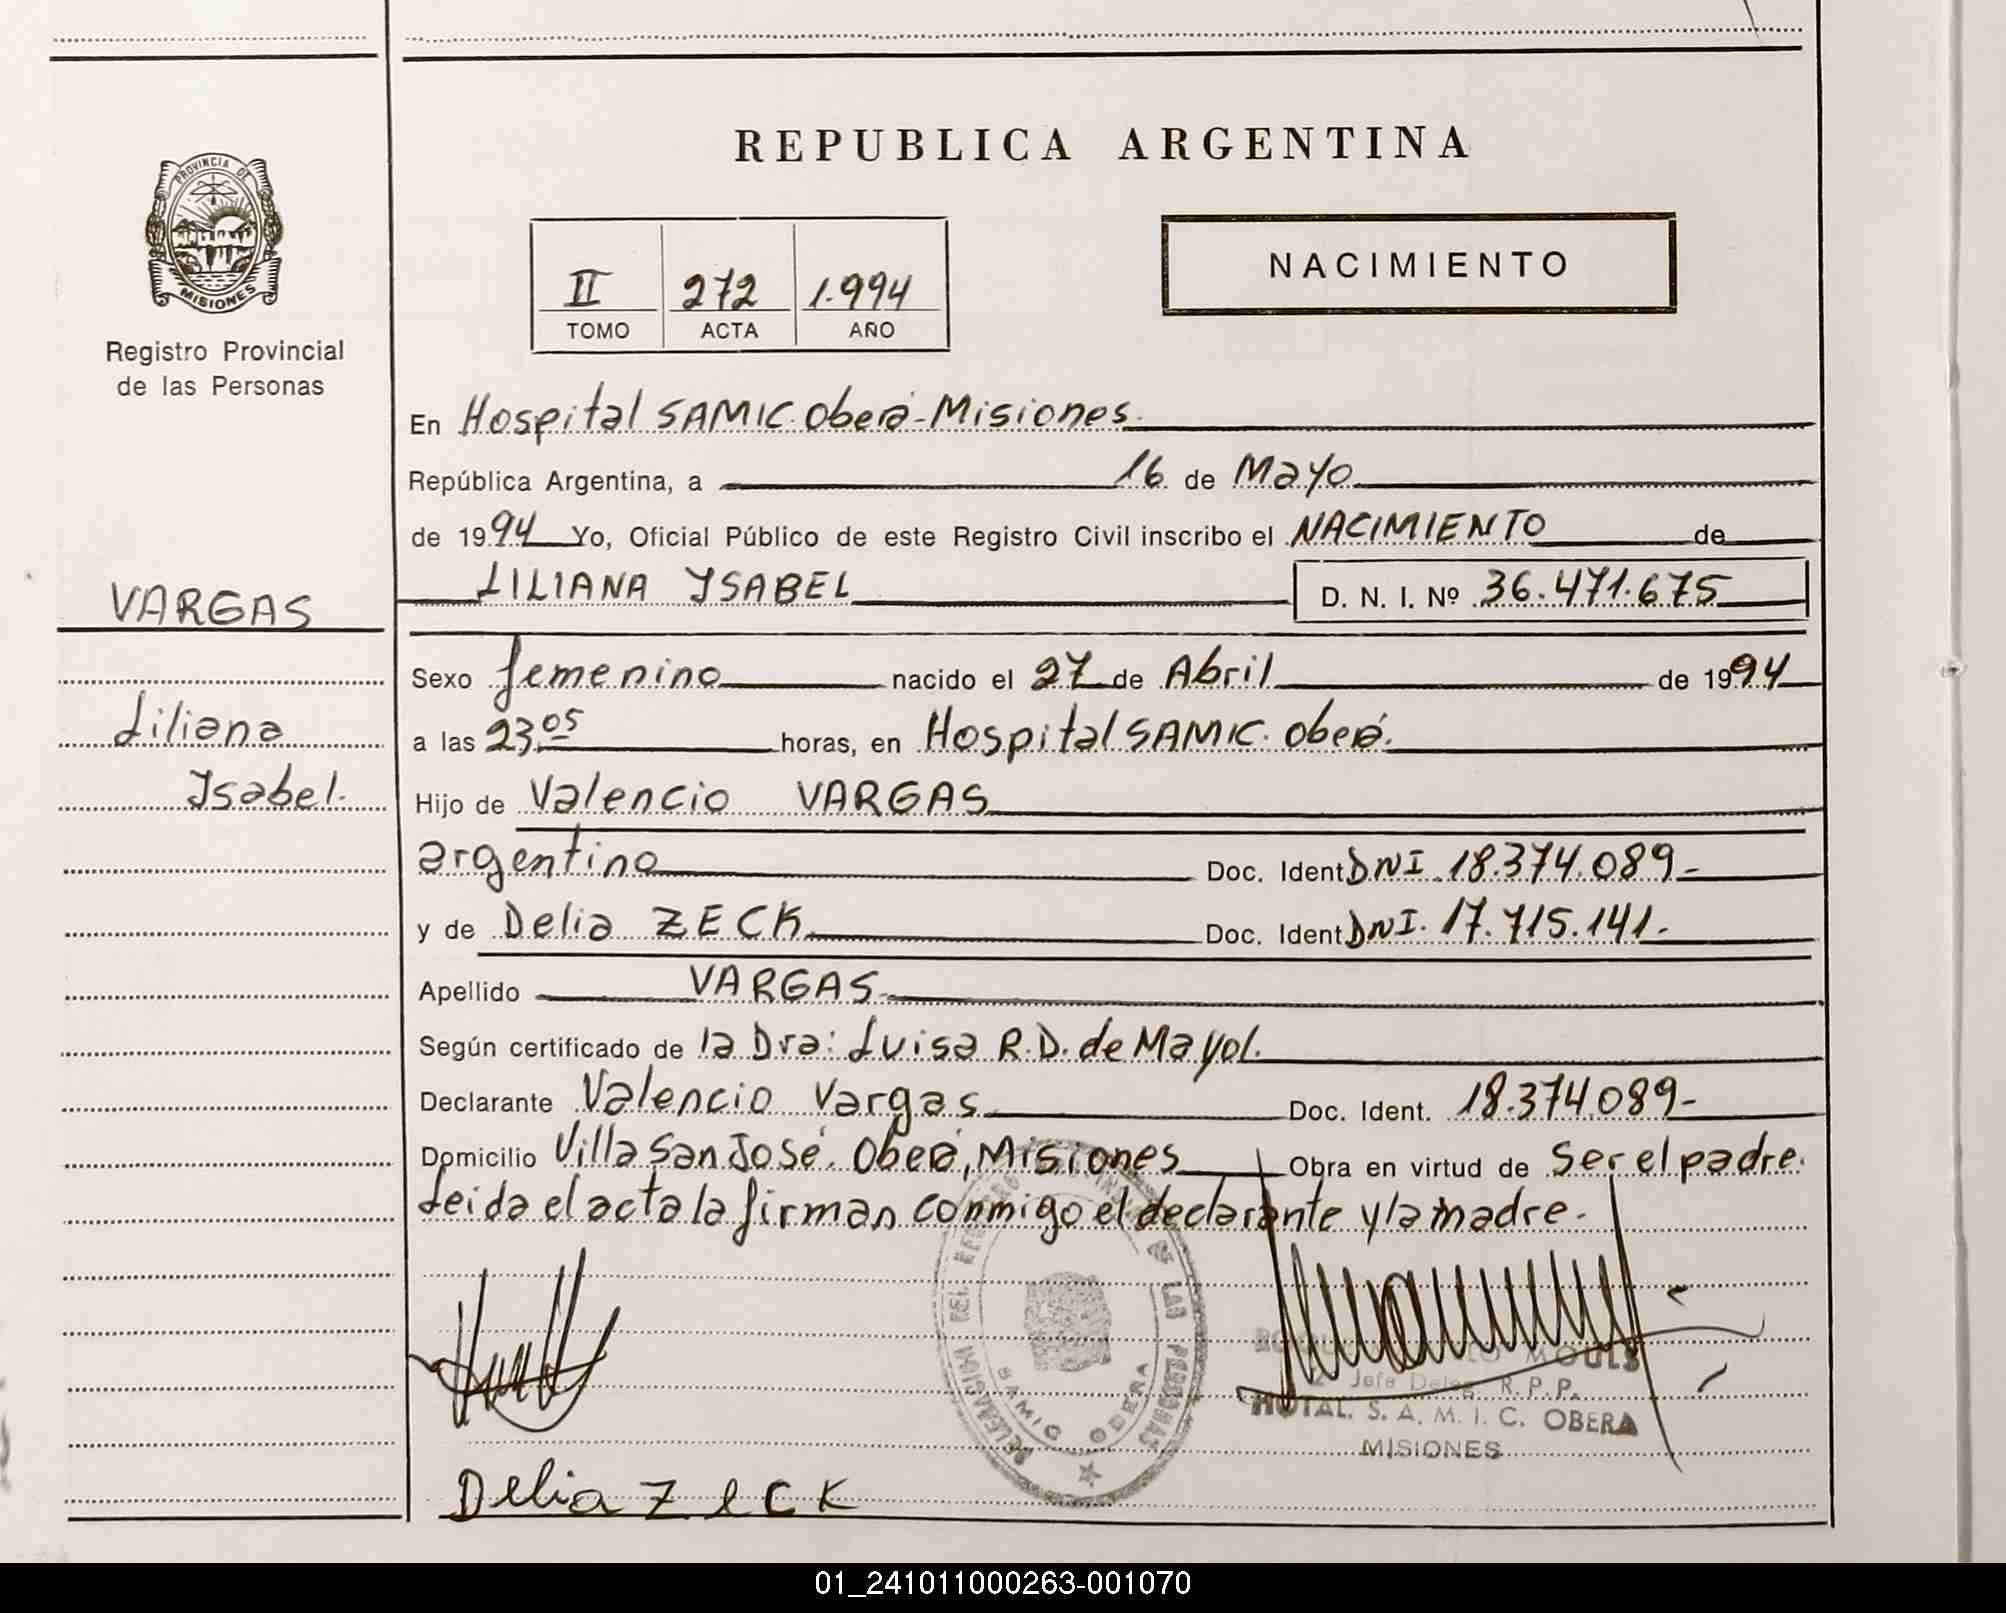 REPUBLICA ARGENTINA
PROVINCIA DE
MISIONES
Registro Provincial
de las Personas
II 272 1.994
TOMO ACTA AÑO
NACIMIENTO
En Hospital SAMIC. Oberá-Misiones.
República Argentina, a 16 de Mayo
de 1994 Yo, Oficial Público de este Registro Civil inscribo el NACIMIENTO de
LILIANA YSABEL D. N. I. Nº 36.471.675
VARGAS
Liliana
Ysabel.
Sexo femenino nacido el 27 de Abril de 1994
a las 23.05 horas, en Hospital SAMIC. Oberá.
Hijo de Valencio VARGAS
argentino Doc. Ident DNI. 18.374.089-
y de Delia ZECK Doc. Ident DNI. 17.715.141.-
Apellido VARGAS
Según certificado de la Dra: Luisa R.D. de Mayol.
Declarante Valencio Vargas Doc. Ident. 18.374.089-
Domicilio Villa San José. Oberá, Misiones Obra en virtud de Ser el padre.
Leida el acta la firman conmigo el declarante y la madre.-
SAMIC OBERA
LAS PERSONAS
MOULS
Jefe Deleg. R.P.P.
HOTAL. S. A. M. I. C. OBERA
MISIONES
Delia ZeCK
01_241011000263-001070